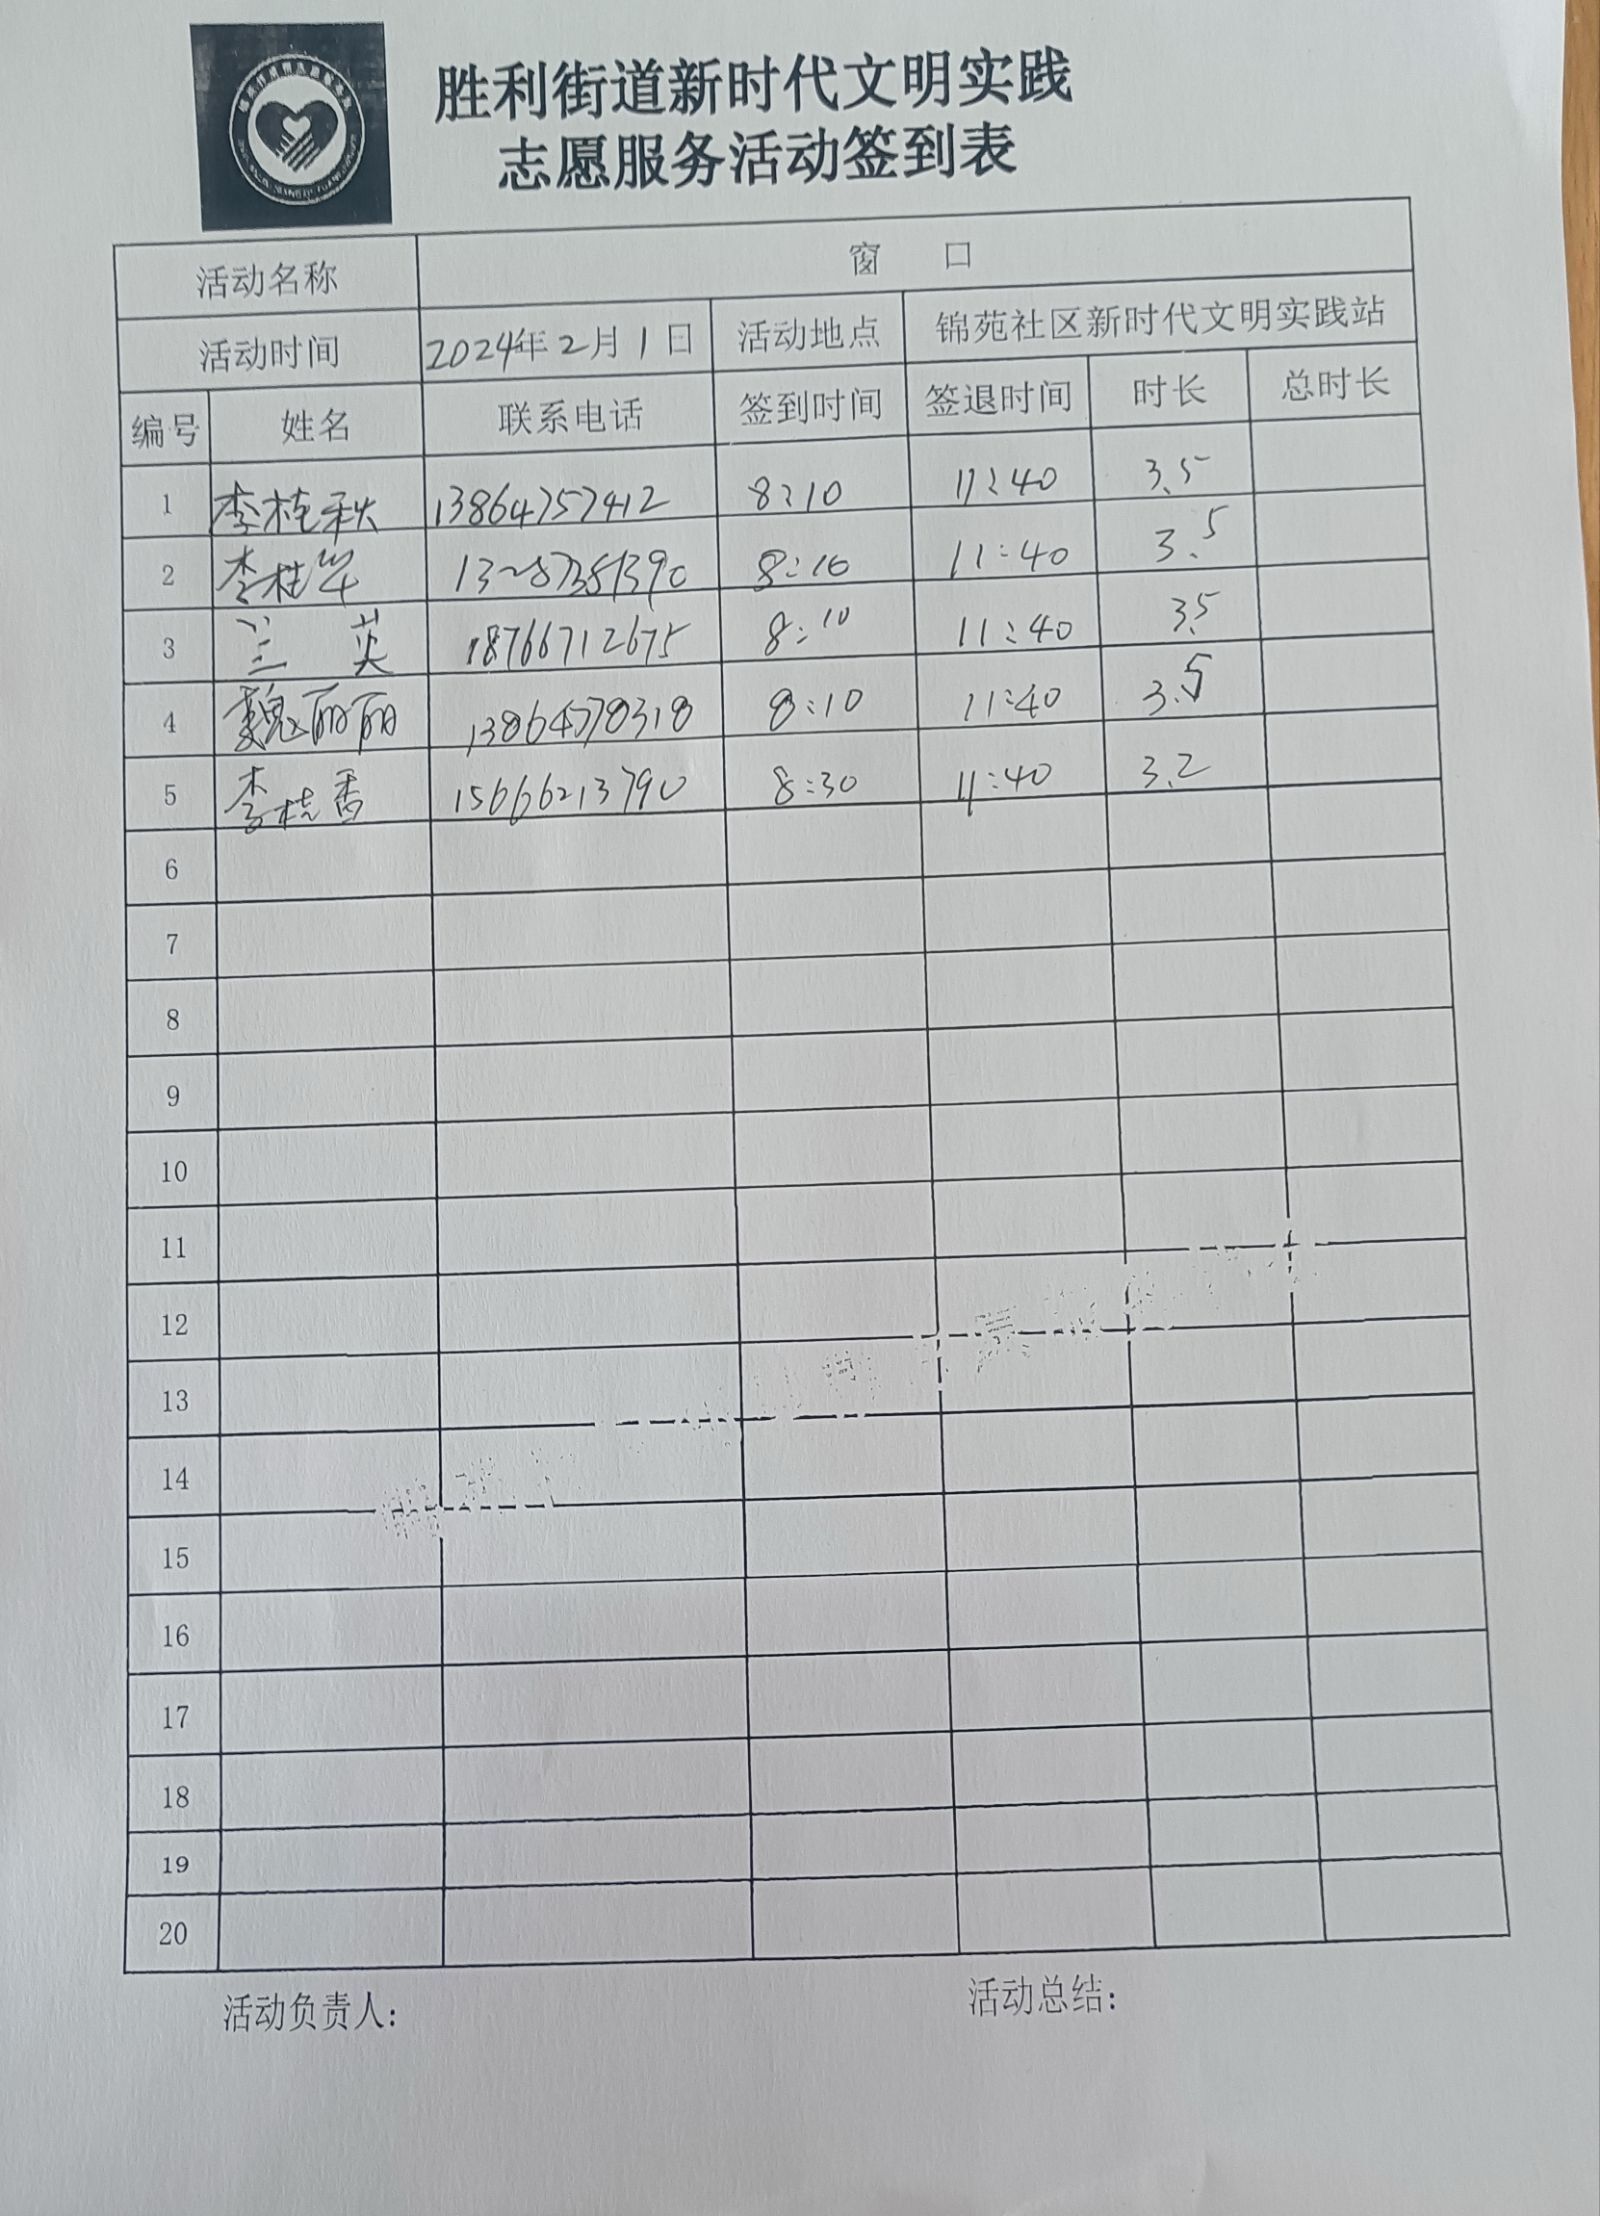 胜利街道新时代文明实践
志愿服务活动签到表
活动名称 窗 口
活动时间 2024年2月1日 活动地点 锦苑社区新时代文明实践站
编号 姓名 联系电话 签到时间 签退时间 时长 总时长
1 李桂秋 13864757412 8:10 11:40 3.5
2 李桂华 8:10 11:40 3.5
3 兰 英 18766712675 8:10 11:40 3.5
4 魏丽丽 13864778318 8:10 11:40 3.5
5 李桂香 15666213790 8:30 11:40 3.2
6
7
8
9
10
11
12
13
14
15
16
17
18
19
20
活动负责人: 活动总结: